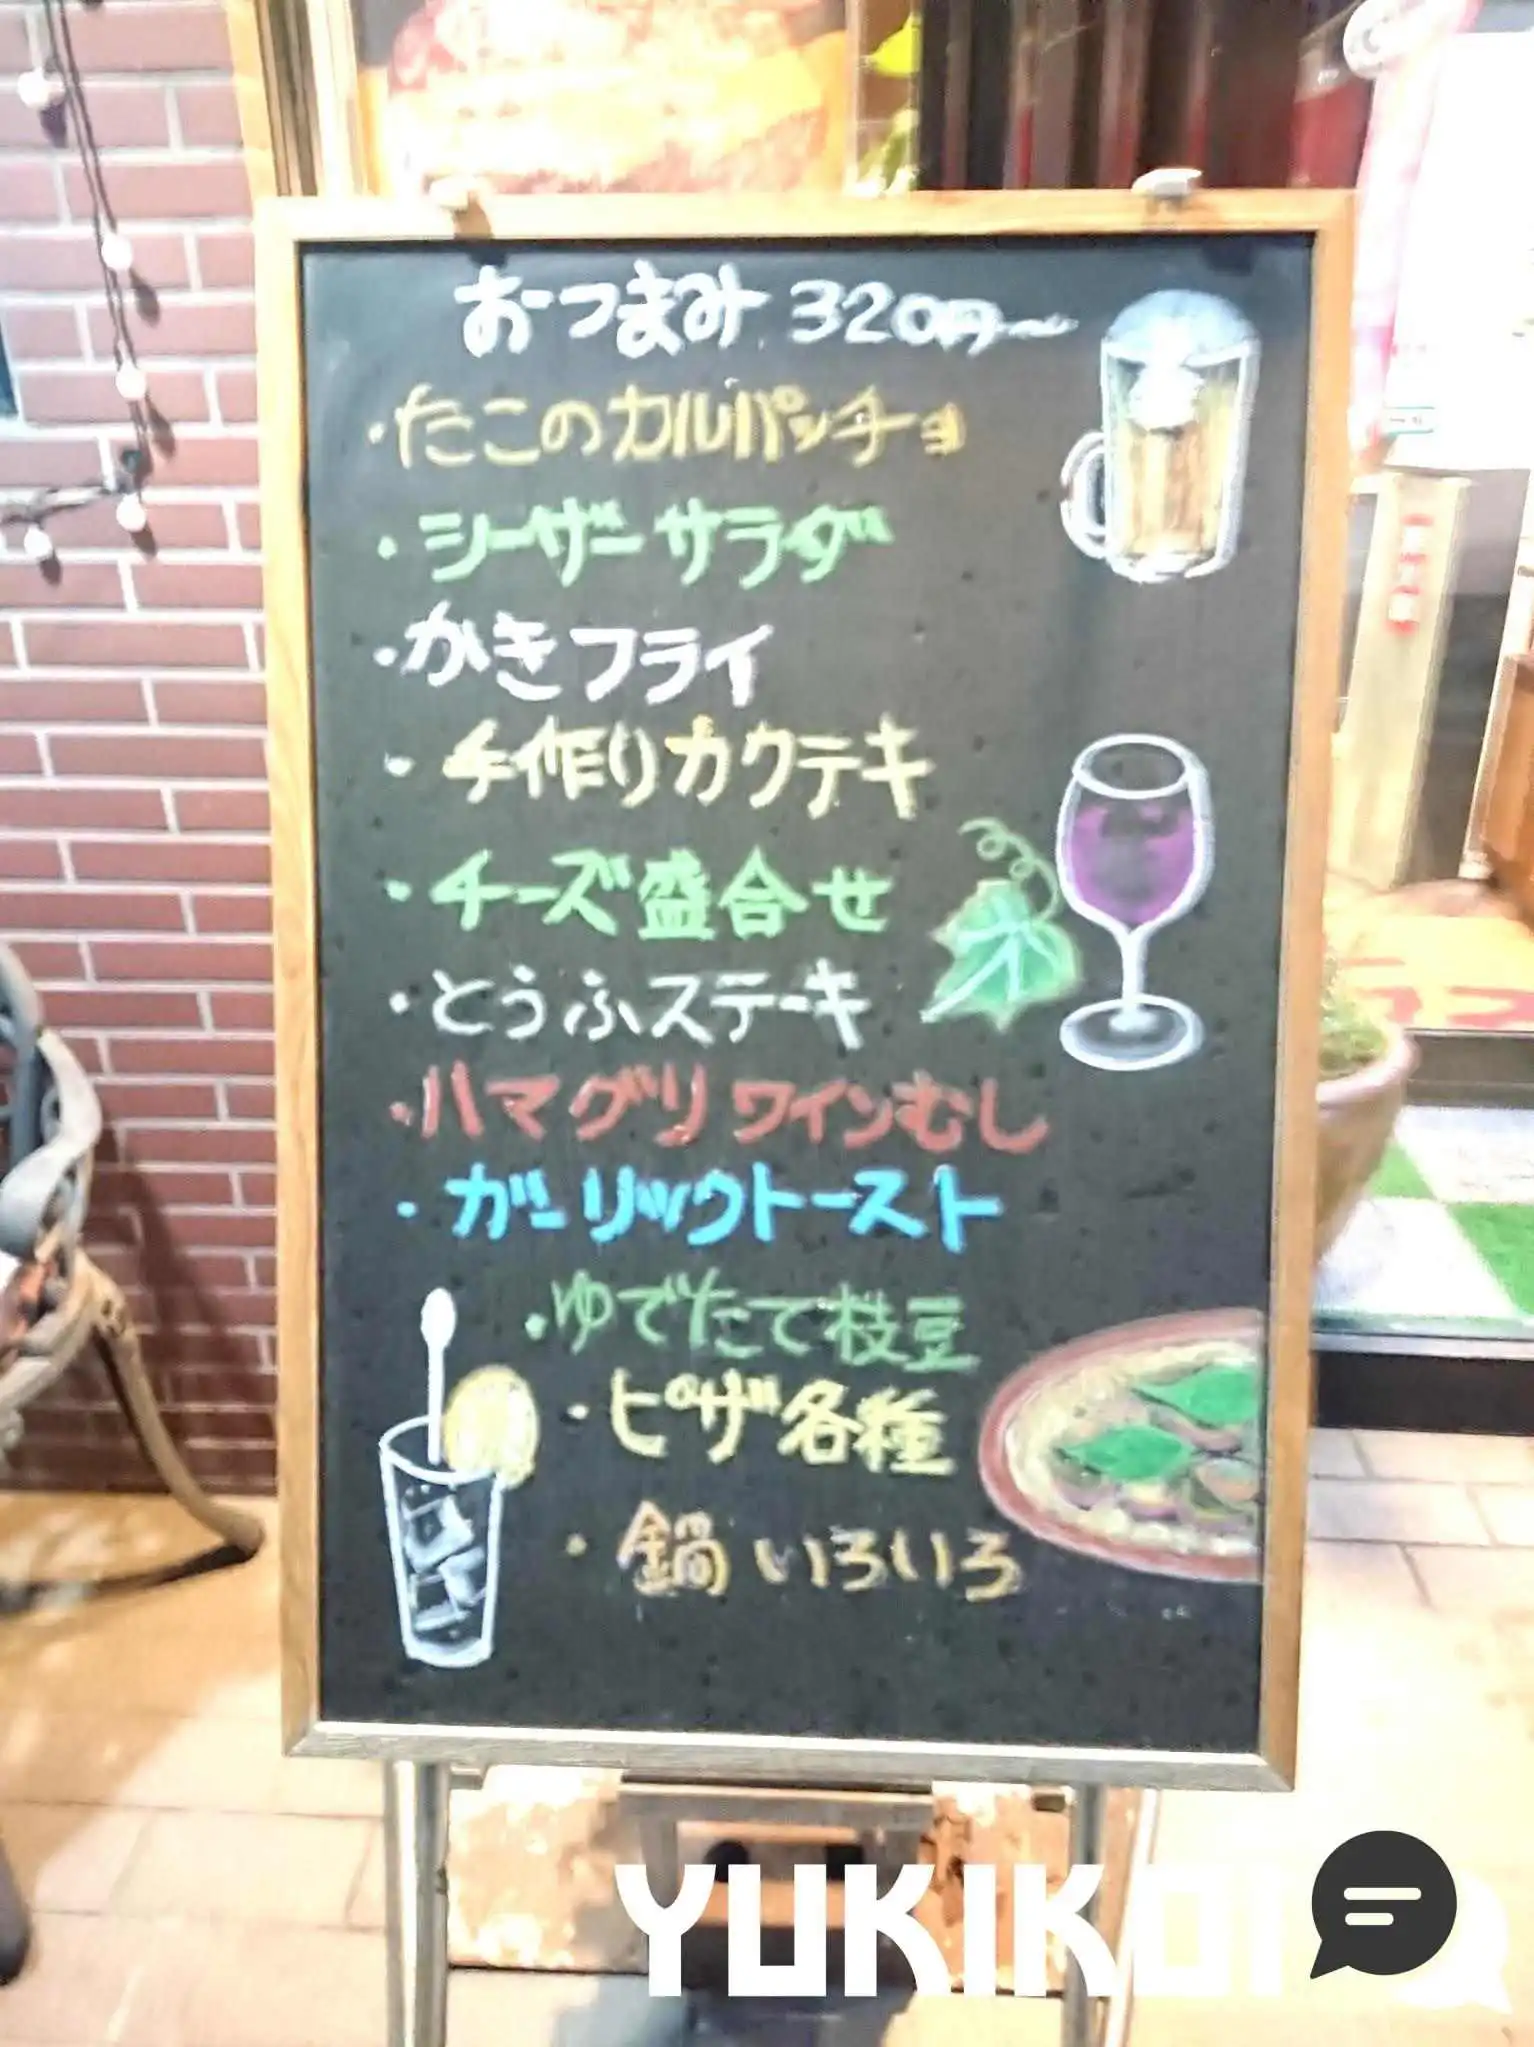 おつまみ 320円～
・たこのカルパッチョ
・シーザーサラダ
・かきフライ
・手作りカクテキ
・チーズ盛合せ
・とうふステーキ
・ハマグリワインむし
・ガーリックトースト
・ゆでたて枝豆
・ピザ各種
・鍋いろいろ
YUKIKOI